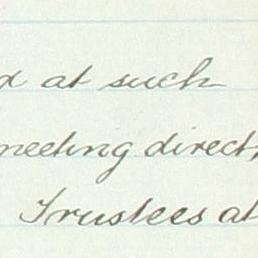 at such
meeting direct,
Trustees at